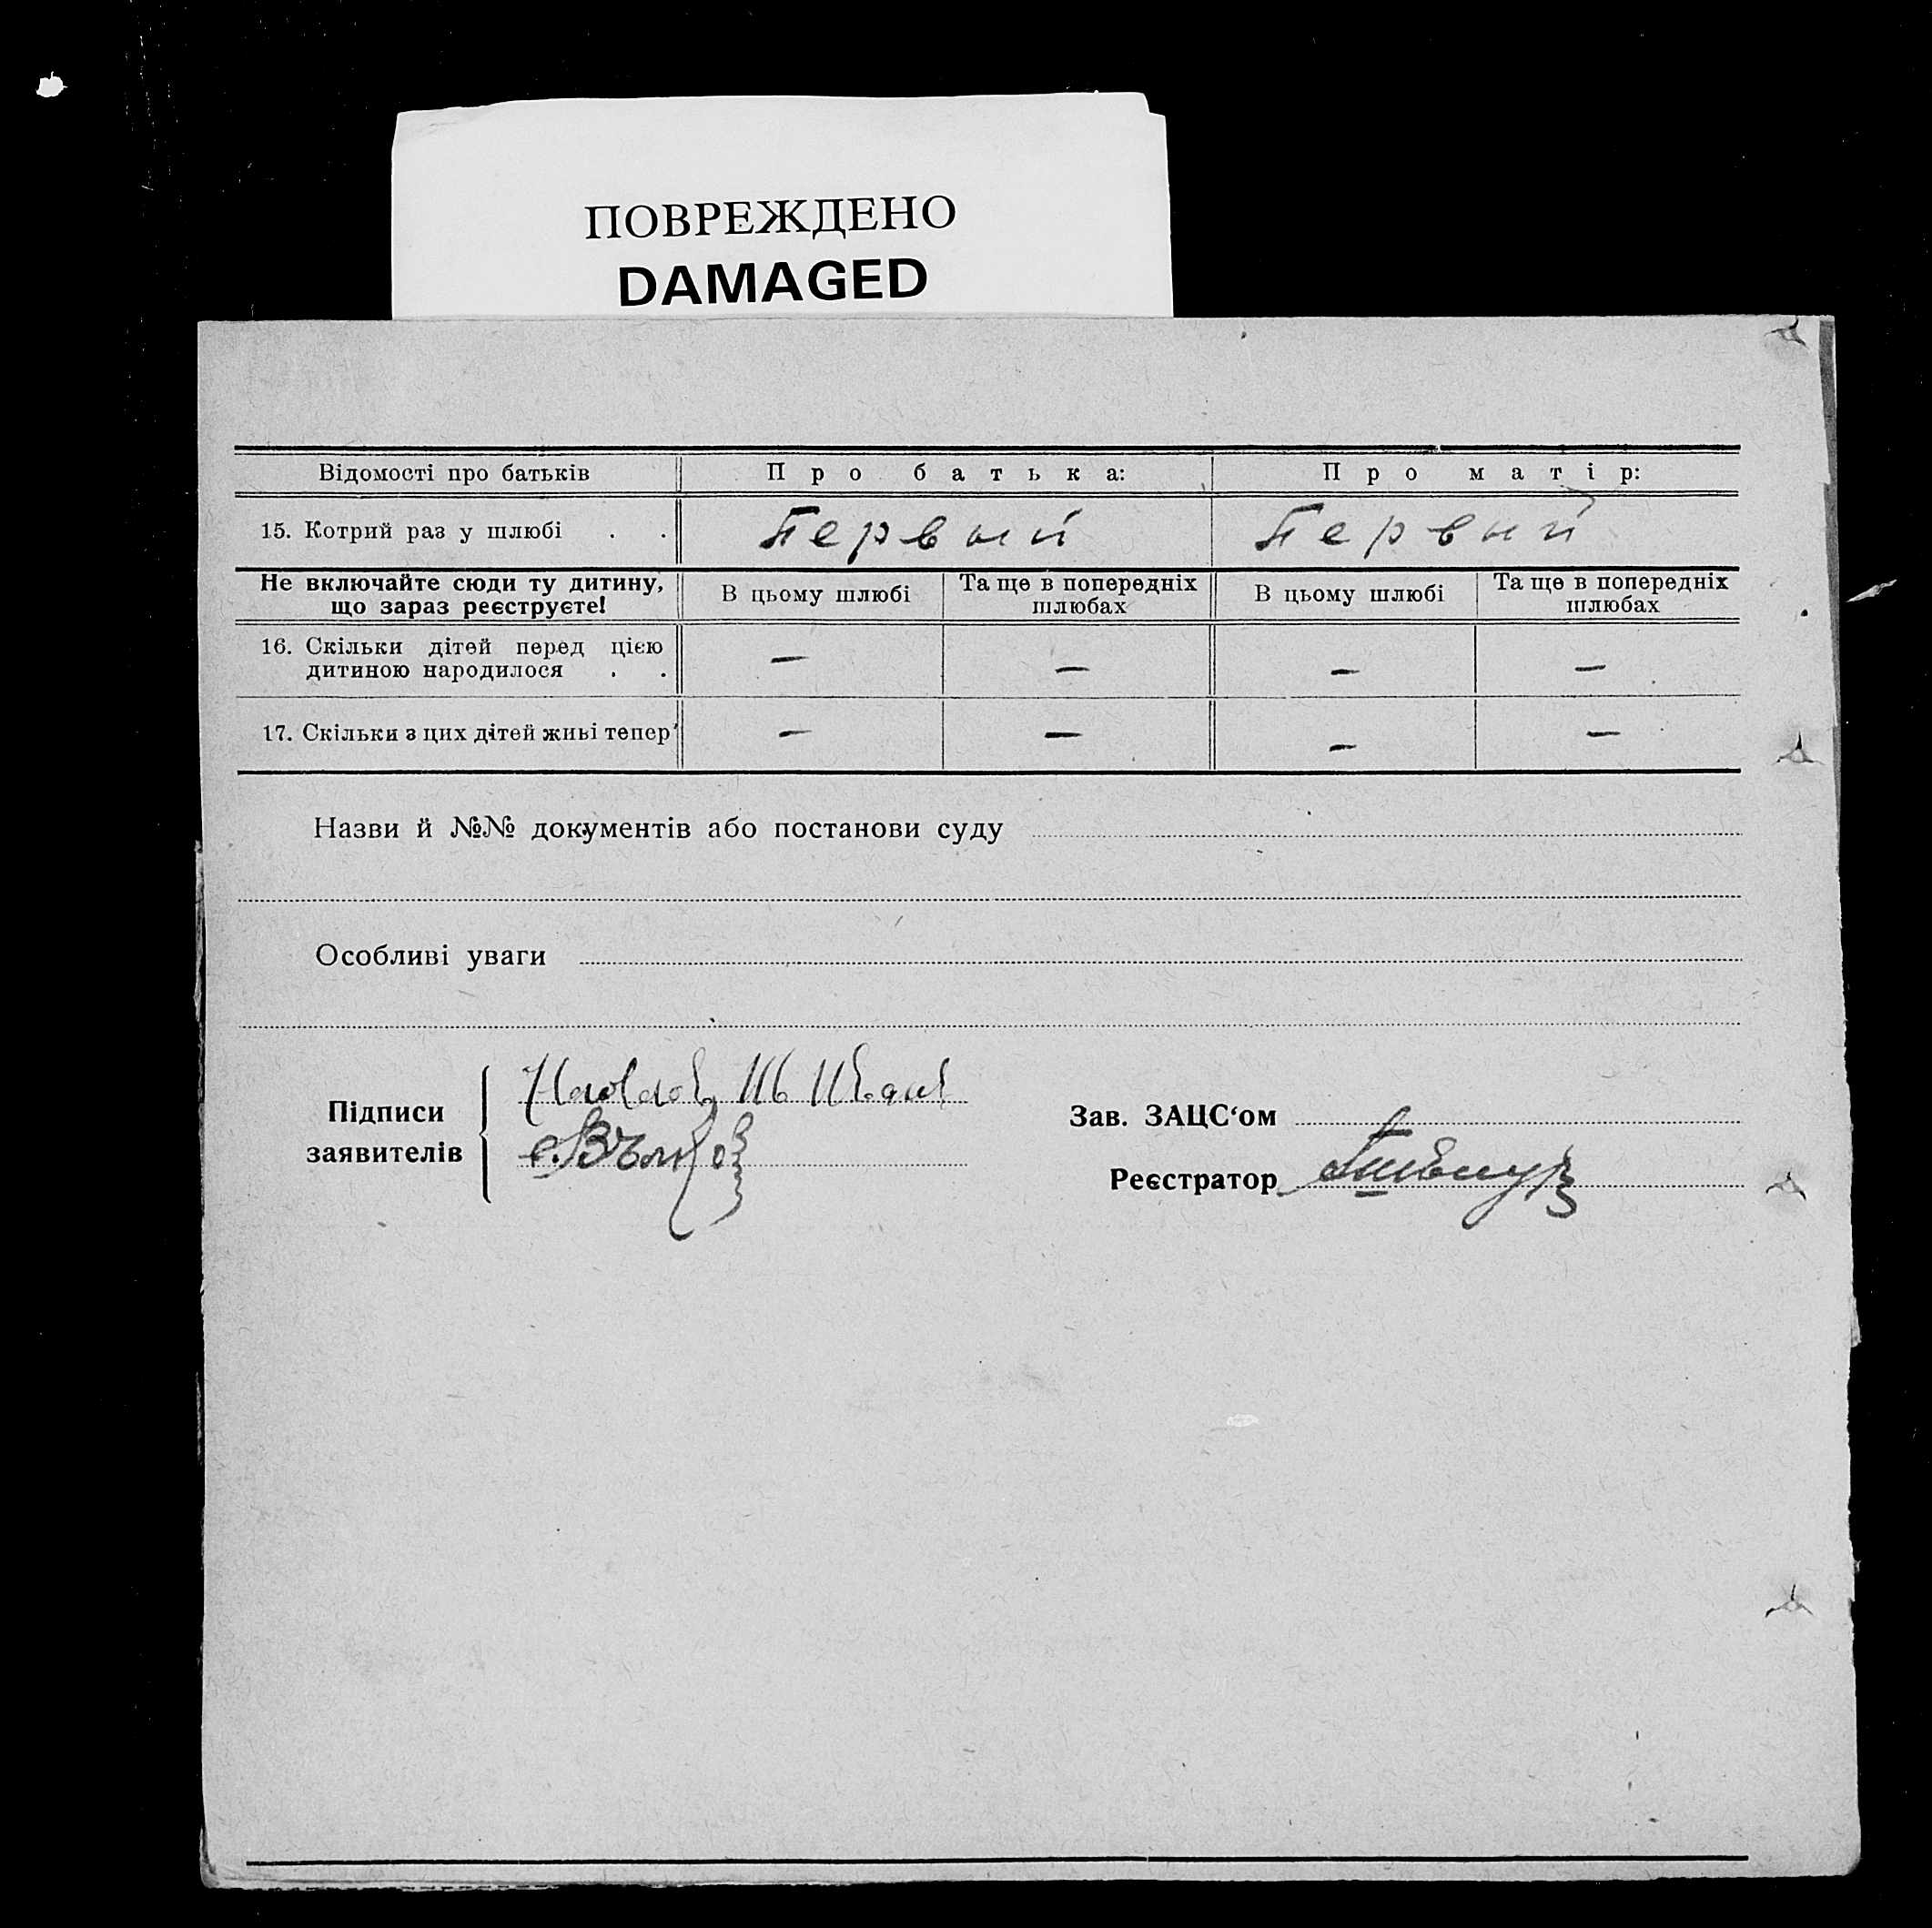 ПОВРЕЖДЕНО
DAMAGED
Відомості про батьків Про батька: Про матір:
15. Котрий раз у шлюбі . . Первый Первый
Не включайте сюди ту дитину, що зараз реєструєте! В цьому шлюбі Та ще в попередніх шлюбах В цьому шлюбі Та ще в попередніх шлюбах
16. Скільки дітей перед цією — — — —
дитиною народилося . .
17. Скільки з цих дітей живі тепер — — — —
Назви й №№ документів або постанови суду
Особливі уваги
Підписи
заявителів
Зав. ЗАЦС‘ом
Реєстратор